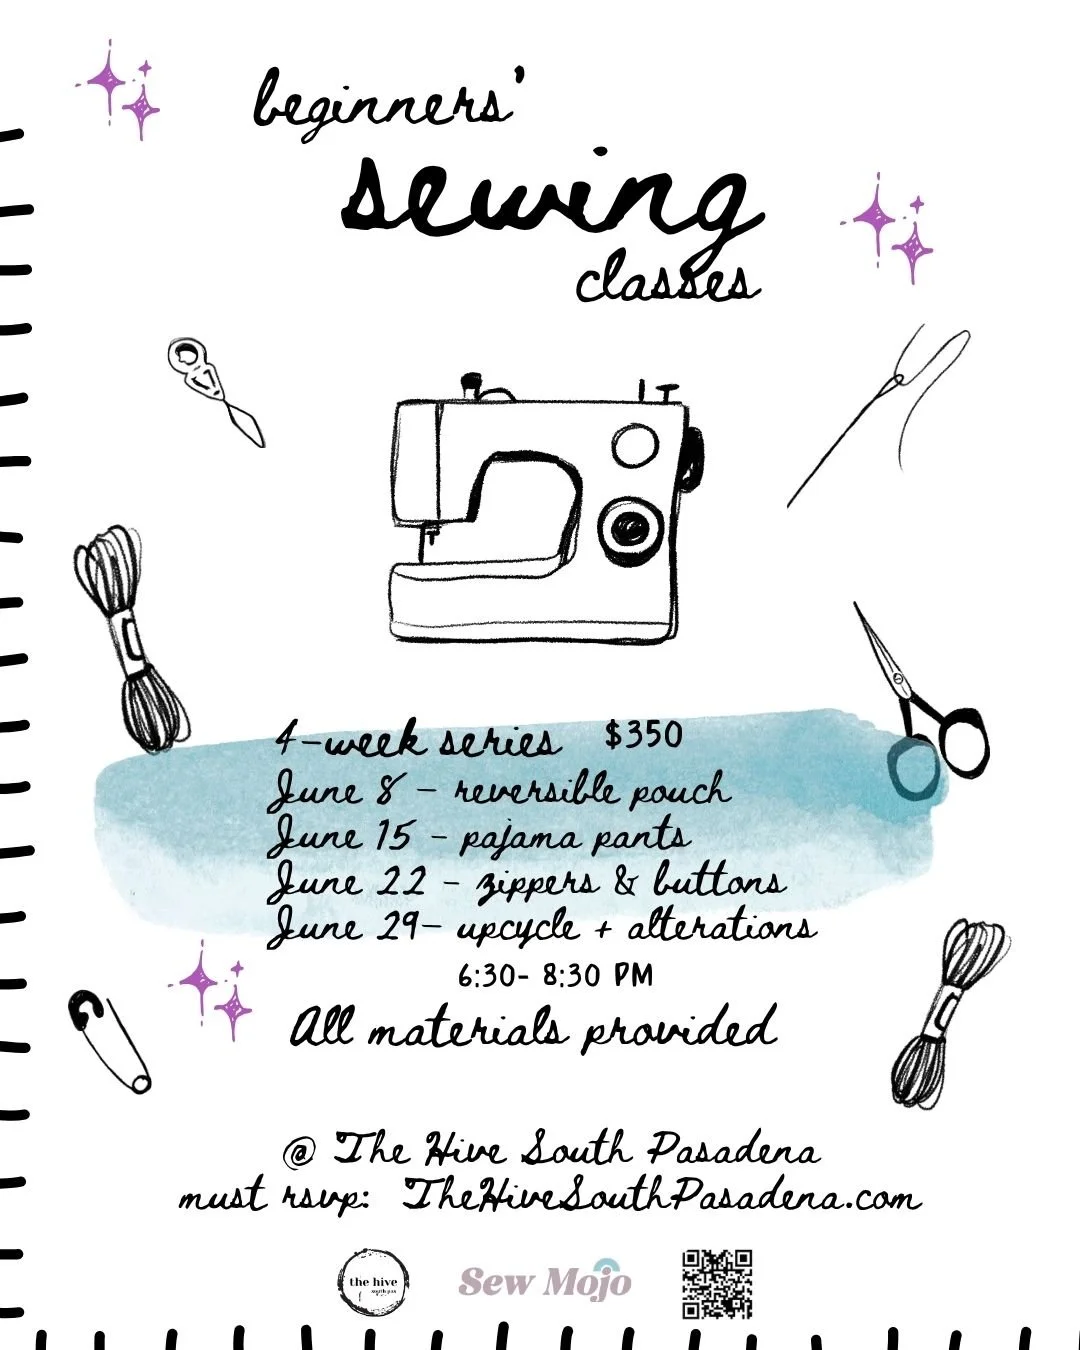 beginners'
sewing
classes
4-week series $350
June 8 - reversible pouch
June 15 - pajama pants
June 22 - zippers & buttons
June 29- upcycle + alterations
6:30- 8:30 PM
All materials provided
@ The Hive South Pasadena
must rsvp: TheHiveSouthPasadena.com
the hive
south pas
Sew Mojo